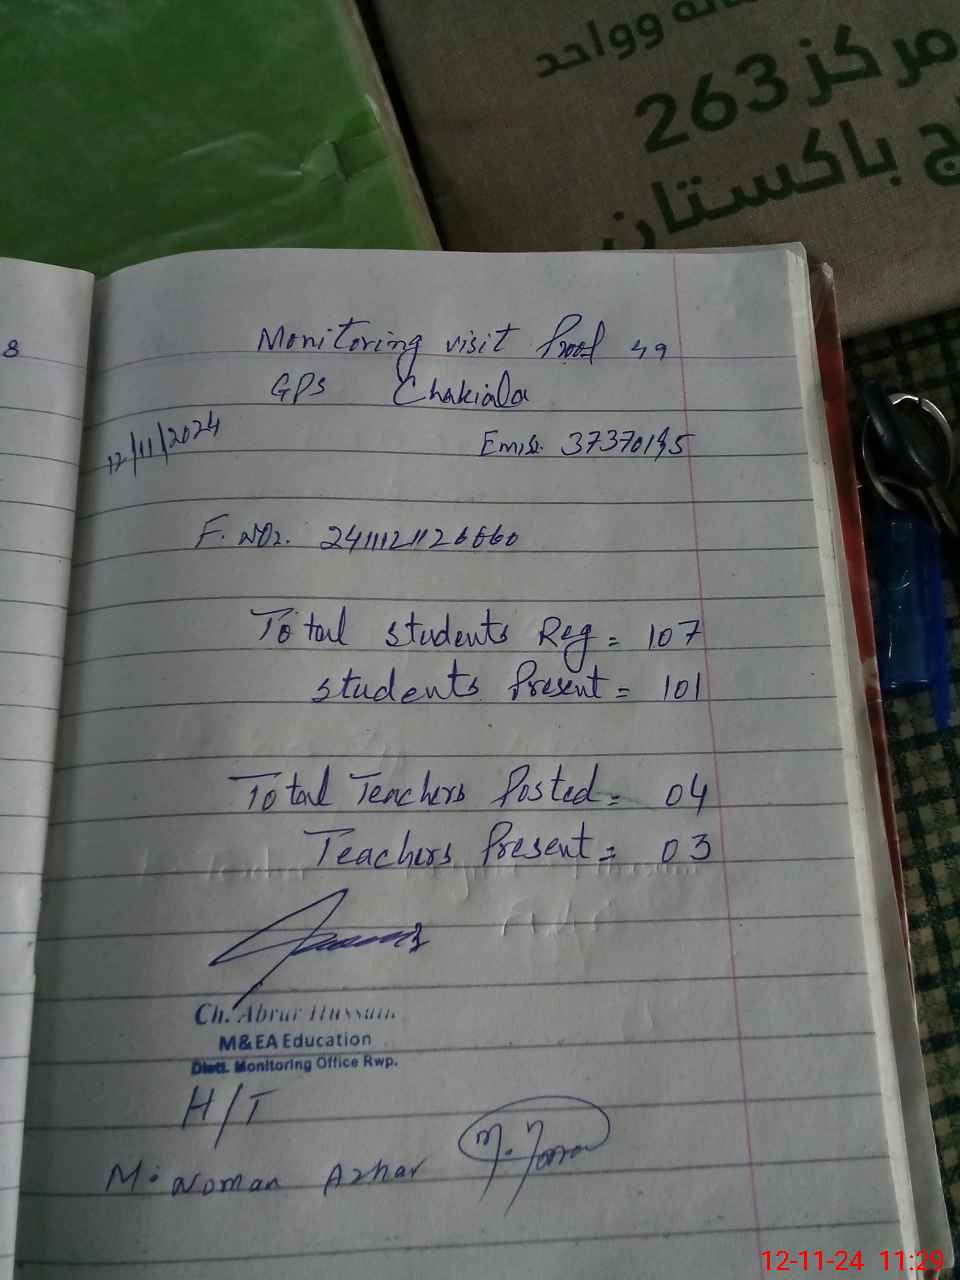 ووواحد
مركز 263
ج باكستان
8
Monitoring visit Proof 49
GPS Chakiala
12/11/2024
Emis. 37370195
F. NO2. 2411121126660
Total students Reg = 107
students Present = 101
Total Teachers Posted = 04
Teachers Present = 03
Ch. Abrar Hussain
M&EA Education
Distt. Monitoring Office Rwp.
H/T
M. Noman Azhar
12-11-24 11:29